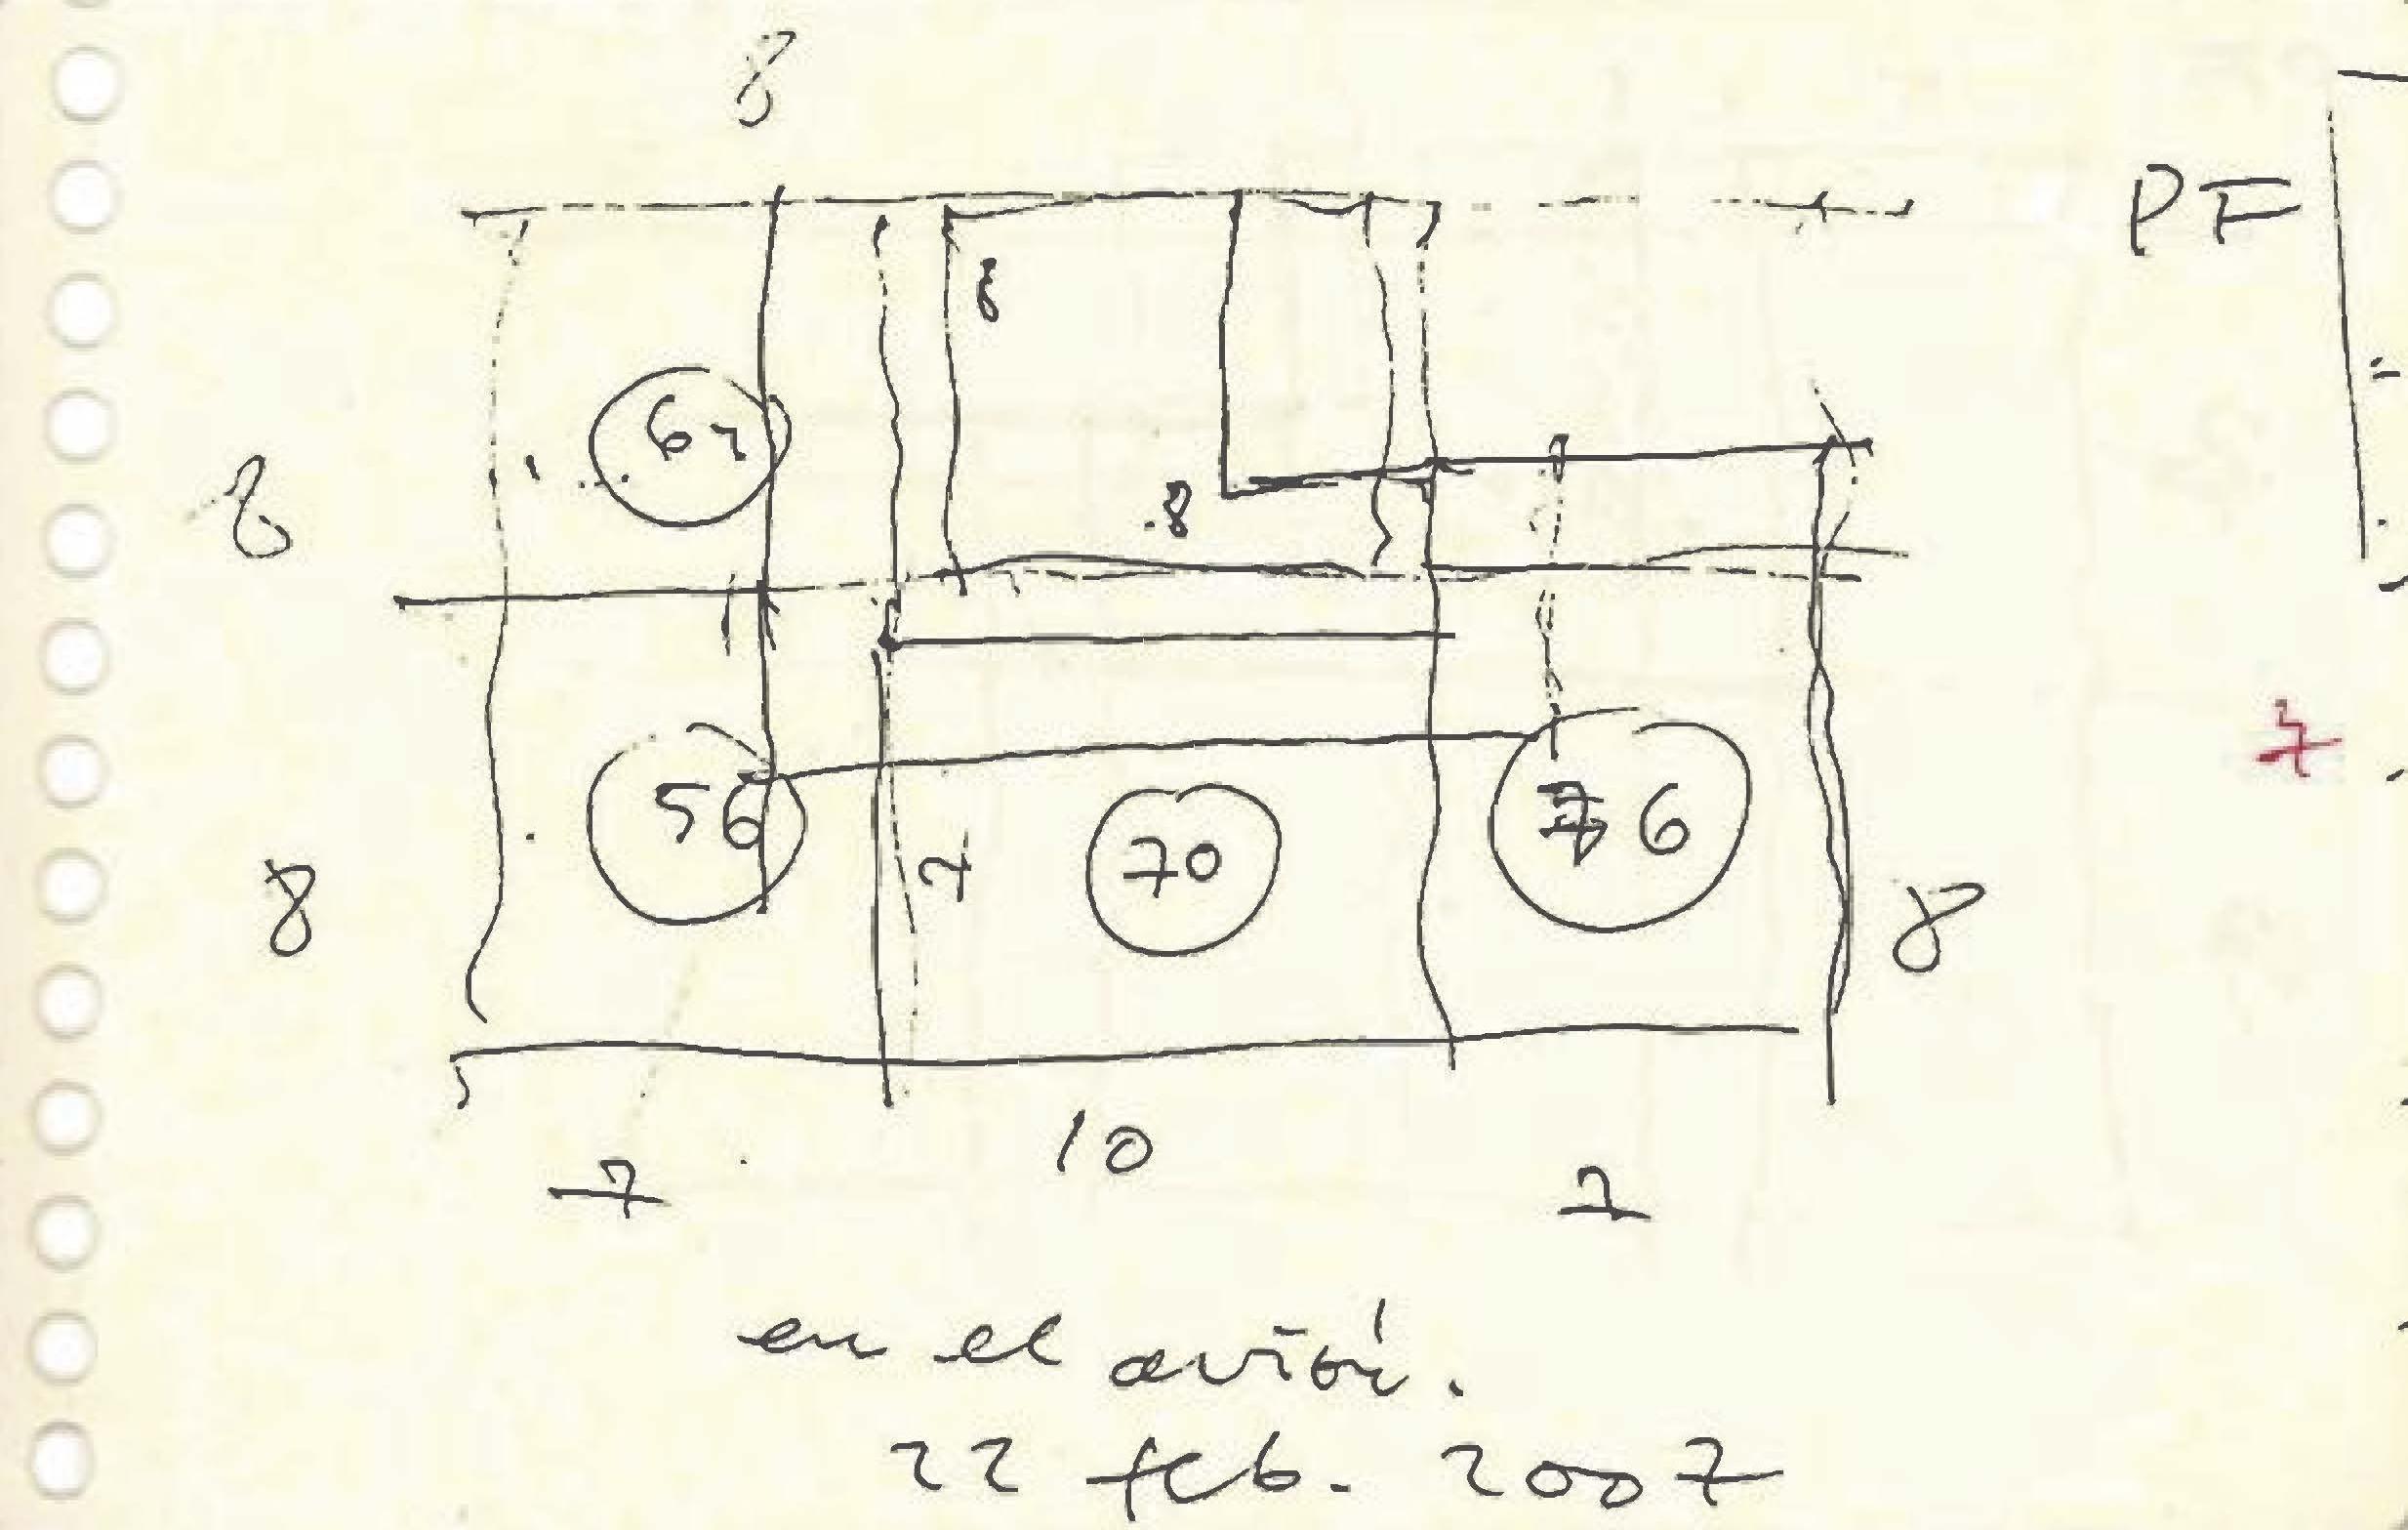 8
PF
8
64
8
.8
7
56
7
70
8
8
10
7
7
en el avión.
22 feb. 2007